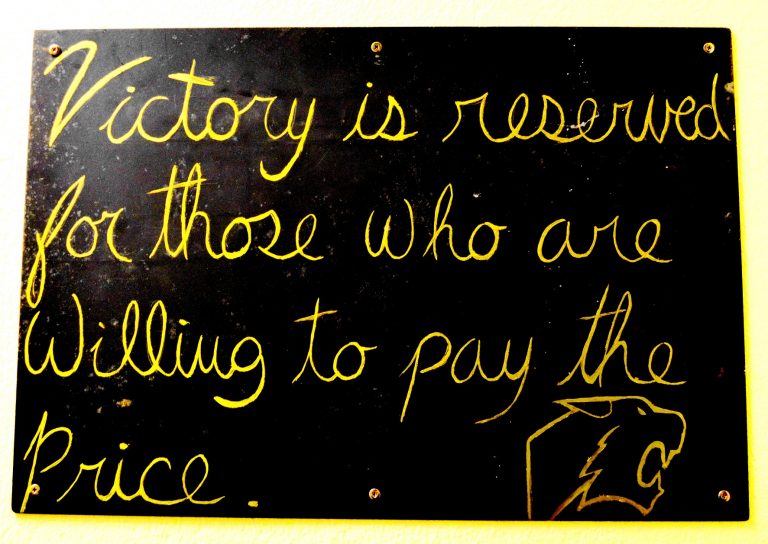 Victory is reserved
for those who are
Willing to pay the
Price.